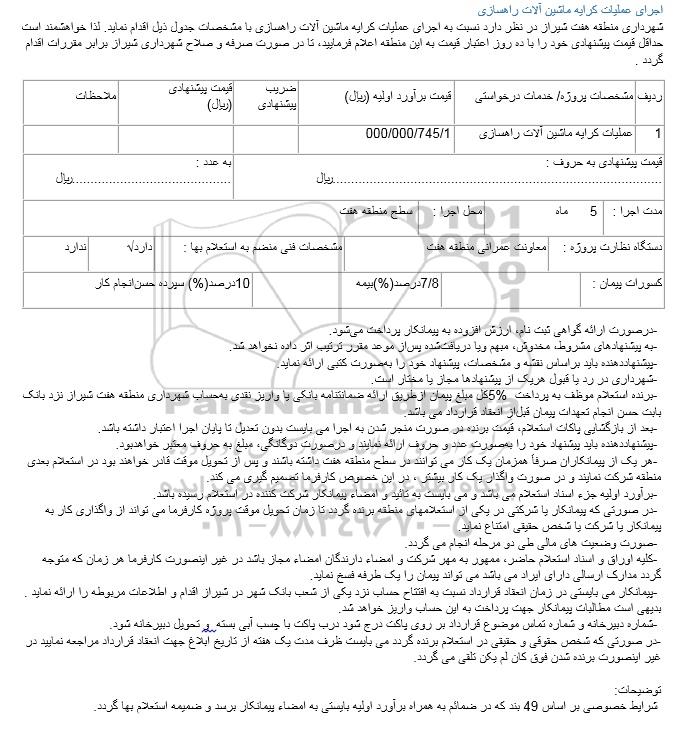 اجرای عملیات کرایه ماشین آلات راهسازی
شهرداری منطقه هفت شیراز در نظر دارد نسبت به اجرای عملیات کرایه ماشین آلات راهسازی با مشخصات جدول ذیل اقدام نماید. لذا خواهشمند است
حداقل قیمت پیشنهادی خود را با ده روز اعتبار قیمت به این منطقه اعلام فرمایید، تا در صورت صرفه و صلاح شهرداری شیراز برابر مقررات اقدام
گردد .
ردیف مشخصات پروژه/ خدمات درخواستی قیمت برآورد اولیه (ریال) ضریب پیشنهادی قیمت پیشنهادی (ریال) ملاحظات
1 عملیات کرایه ماشین آلات راهسازی 000/000/745/1
قیمت پیشنهادی به حروف : به عدد :
ریال ریال
مدت اجرا : 5 ماه محل اجرا : سطح منطقه هفت
دستگاه نظارت پروژه : معاونت عمرانی منطقه هفت مشخصات فنی منضم به استعلام بها : دارد√ ندارد
کسورات پیمان : 7/8درصد(%)بیمه 10درصد(%) سپرده حسن‌انجام کار
-درصورت ارائه گواهی ثبت نام، ارزش افزوده به پیمانکار پرداخت می‌شود.
-به پیشنهادهای مشروط، مخدوش، مبهم ویا دریافت‌شده پس‌از موعد مقرر ترتیب اثر داده نخواهد شد.
-پیشنهاددهنده باید براساس نقشه و مشخصات، پیشنهاد خود را به‌صورت کتبی ارائه نماید.
-شهرداری در رد یا قبول هریک از پیشنهادها مجاز یا مختار است.
-برنده استعلام موظف به پرداخت 5%کل مبلغ پیمان ازطریق ارائه ضمانتنامه بانکی یا واریز نقدی به‌حساب شهرداری منطقه هفت شیراز نزد بانک
بابت حسن انجام تعهدات پیمان قبل‌از انعقاد قرارداد می باشد.
-بعد از بازگشایی پاکات استعلام، قیمت برنده در صورت منجر شدن به اجرا می بایست بدون تعدیل تا پایان اجرا اعتبار داشته باشد.
-پیشنهاددهنده باید پیشنهاد خود را به‌صورت عدد و حروف ارائه نمایند و درصورت دوگانگی، مبلغ به حروف معتبر خواهدبود.
-هر یک از پیمانکاران صرفاً همزمان یک کار می توانند در سطح منطقه هفت داشته باشند و پس از تحویل موقت قادر خواهند بود در استعلام بعدی
منطقه شرکت نمایند و در صورت واگذار یک کار بیشتر ، در این خصوص کارفرما تصمیم گیری می کند.
-برآورد اولیه جزء اسناد استعلام می باشد و می بایست به تائید و امضاء پیمانکار شرکت کننده در استعلام رسیده باشد.
-در صورتی که پیمانکار یا شرکتی در یکی از استعلامهای منطقه برنده گردد تا زمان تحویل موقت پروژه کارفرما می تواند از واگذاری کار به
پیمانکار یا شرکت یا شخص حقیقی امتناع نماید.
-صورت وضعیت های مالی طی دو مرحله انجام می گردد.
-کلیه اوراق و اسناد استعلام حاضر، ممهور به مهر شرکت و امضاء دارندگان امضاء مجاز باشد در غیر اینصورت کارفرما هر زمان که متوجه
گردد مدارک ارسالی دارای ایراد می باشد می تواند پیمان را یک طرفه فسخ نماید.
-پیمانکار می بایستی در زمان انعقاد قرارداد نسبت به افتتاح حساب نزد یکی از شعب بانک شهر در شیراز اقدام و اطلاعات مربوطه را ارائه نماید .
بدیهی است مطالبات پیمانکار جهت پرداخت به این حساب واریز خواهد شد.
-شماره دبیرخانه و شماره تماس موضوع قرارداد بر روی پاکت درج شود درب پاکت با چسب آبی بسته و تحویل دبیرخانه شود.
-در صورتی که شخص حقوقی و حقیقی در استعلام برنده گردد می بایست ظرف مدت یک هفته از تاریخ ابلاغ جهت انعقاد قرارداد مراجعه نمایید در
غیر اینصورت برنده شدن فوق کان لم یکن تلقی می گردد.
توضیحات:
شرایط خصوصی بر اساس 49 بند که در ضمائم به همراه برآورد اولیه بایستی به امضاء پیمانکار برسد و ضمیمه استعلام بها گردد.